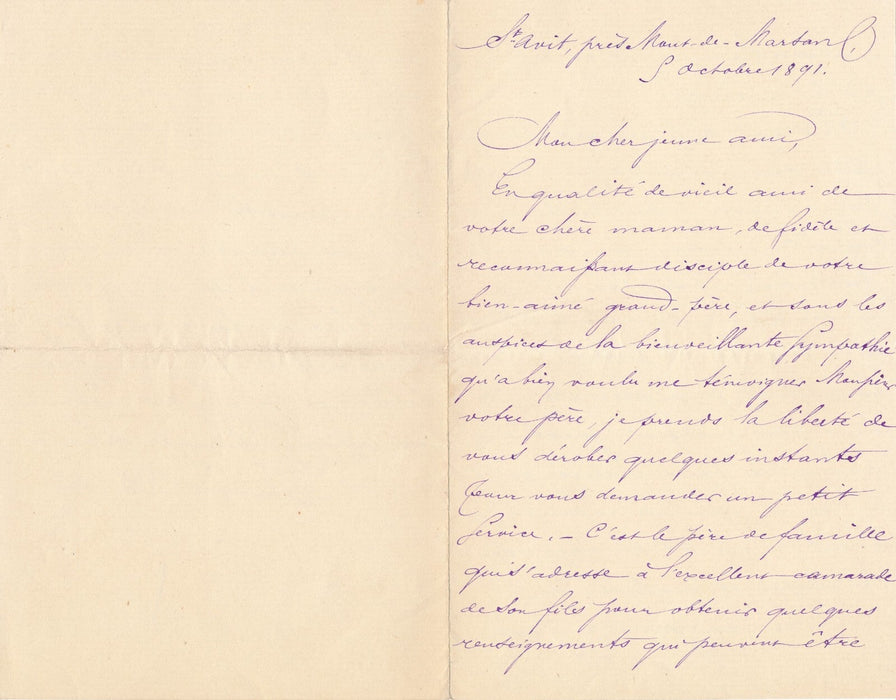 St Avit, près Mont-de-Marsan,
5 Octobre 1891.
Mon cher jeune ami,
En qualité de vieil ami de
votre chère maman, de fidèle et
reconnaissant disciple de votre
bien-aimé grand-père, et sous les
auspices de la bienveillante sympathie
qu'a bien voulu me témoigner Monsieur
votre père, je prends la liberté de
vous dérober quelques instants
pour vous demander un petit
service. – C'est le père de famille
qui s'adresse à l'excellent camarade
de son fils pour obtenir quelques
renseignements qui peuvent être